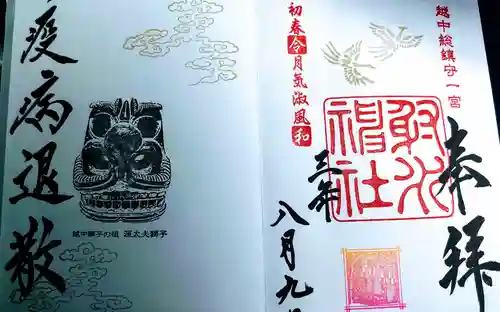 越中総鎮守一宮
奉拝
射水神社
初春令月気淑風和
三年
八月九日
疫病退散
越中獅子の祖 源太夫獅子